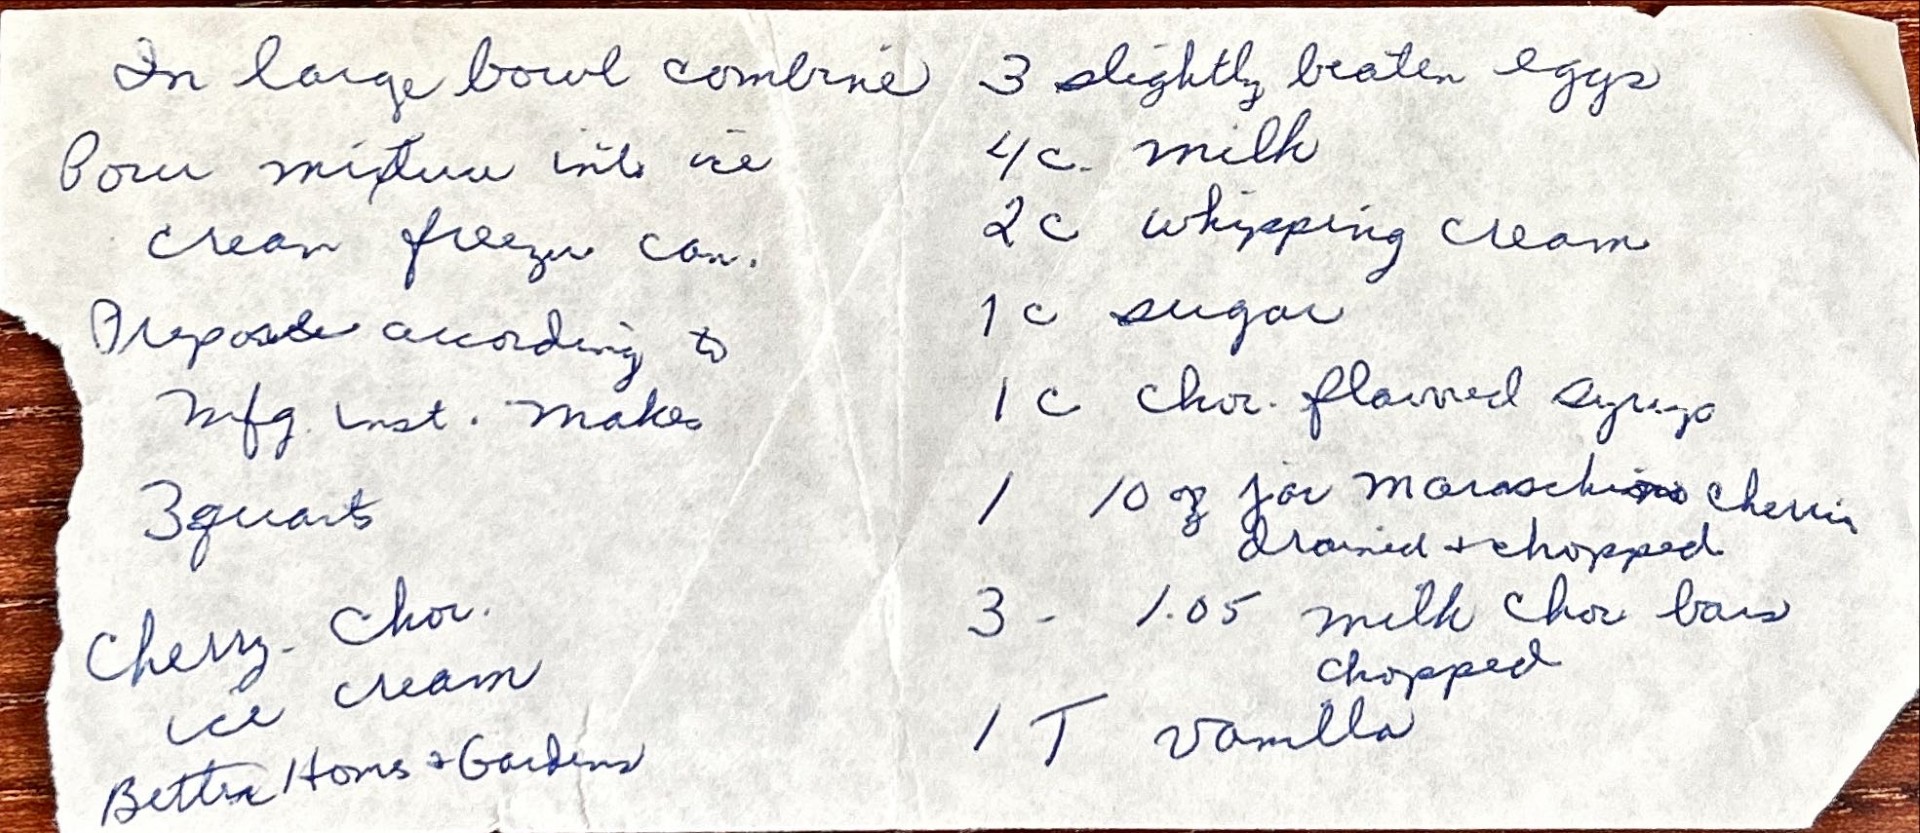 In large bowl combine
Pour mixture into ice
cream freezer can.
Prepare according to
mfg. inst. Makes
3 quarts
Cherry-Choc.
ice cream
Better Homes + Gardens
3 slightly beaten eggs
4 c. milk
2 c whipping cream
1 c sugar
1 c choc. flavored syrup
1 10 oz jar maraschino cherries
drained + chopped
3 - 1.05 milk choc bars
chopped
1 T vanilla